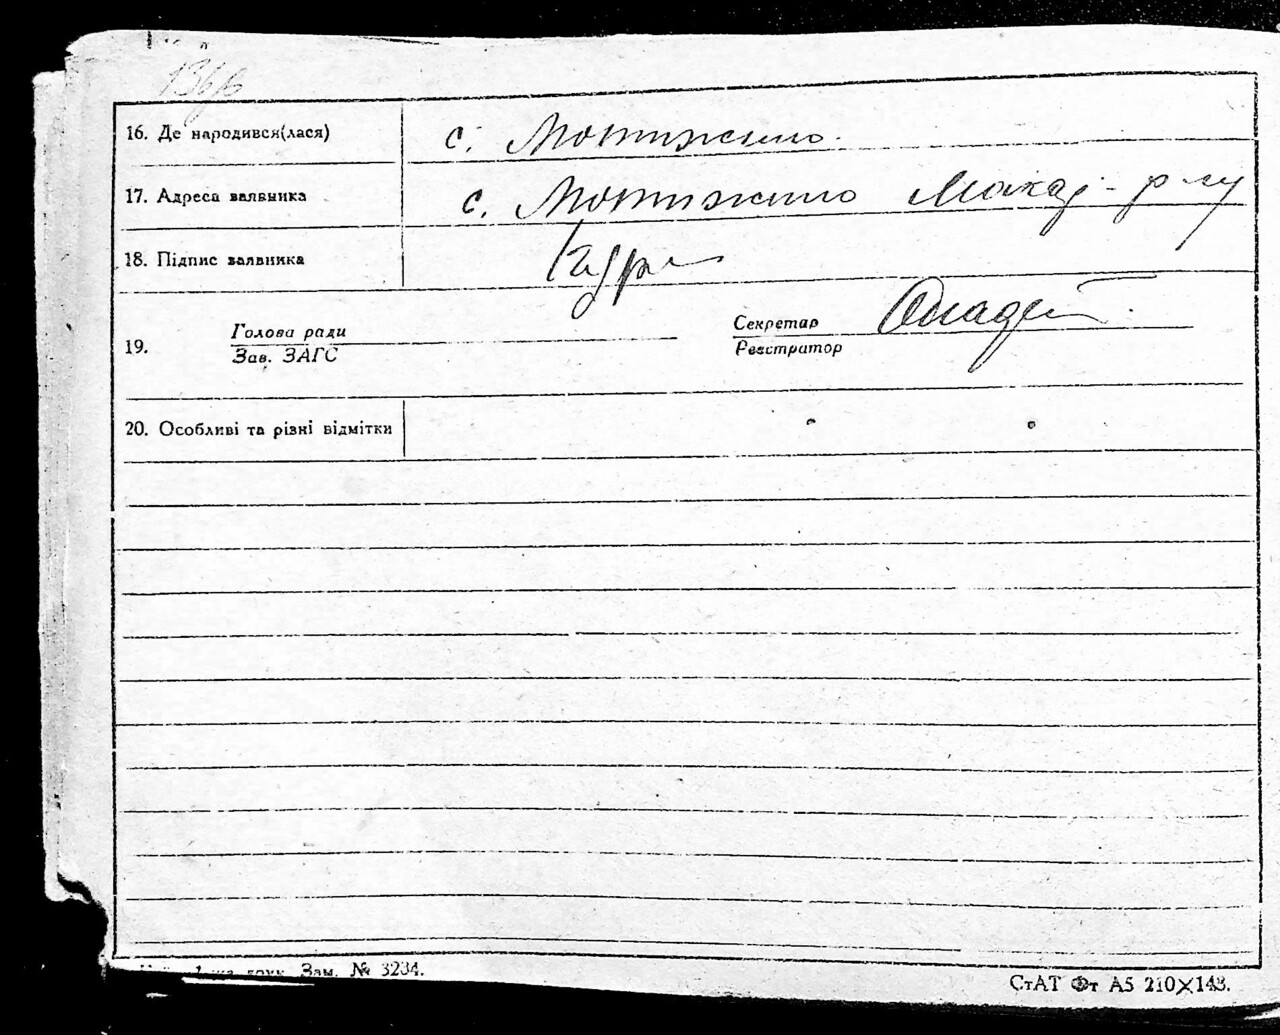 136
16. Де народився(лася) с. Мотижино.
17. Адреса заявника с. Мотижино Макар-р-ну
18. Підпис заявника
19. Голова ради
Зав. ЗАГС
Секретар
Реєстратор
20. Особливі та різні відмітки
Зам. № 3234.
СтАТ Фт А5 210×148.